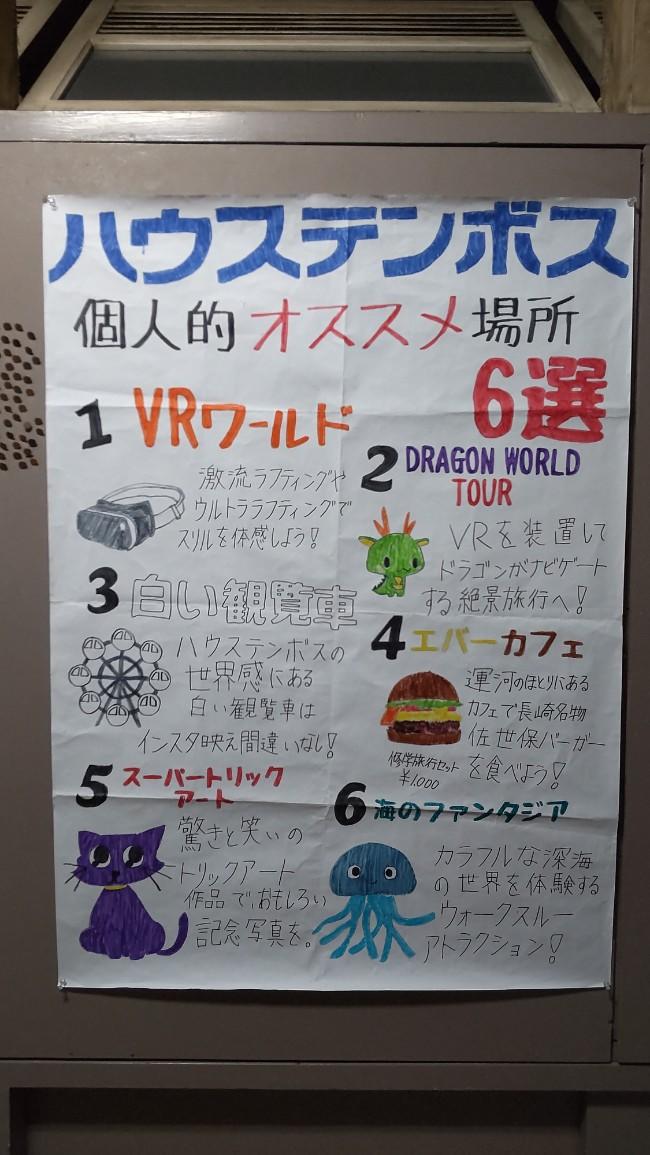 ハウステンボス
個人的オススメ場所
6選
1 VRワールド
激流ラフティングや
ウルトララフティングで
スリルを体感しよう!
2 DRAGON WORLD
TOUR
VRを装置して
ドラゴンがナビゲート
する絶景旅行へ!
3 白い観覧車
ハウステンボスの
世界感にある
白い観覧車は
インスタ映え間違いなし!
4 エバーカフェ
運河のほとりにある
カフェで長崎名物
佐世保バーガー
を食べよう!
修学旅行セット
¥1,000
5 スーパートリック
アート
驚きと笑いの
トリックアート
作品で、おもしろい
記念写真を。
6 海のファンタジア
カラフルな深海
の世界を体験する
ウォークスルー
アトラクション!